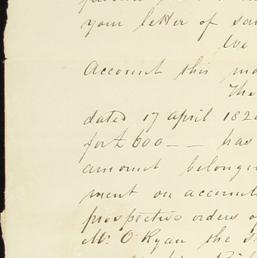 your letter of
We
Account this
The
dated 17 april 182
for £ 600 — — has
amount belonge
ment on account
prospective orders o
Mr. O'Ryan the